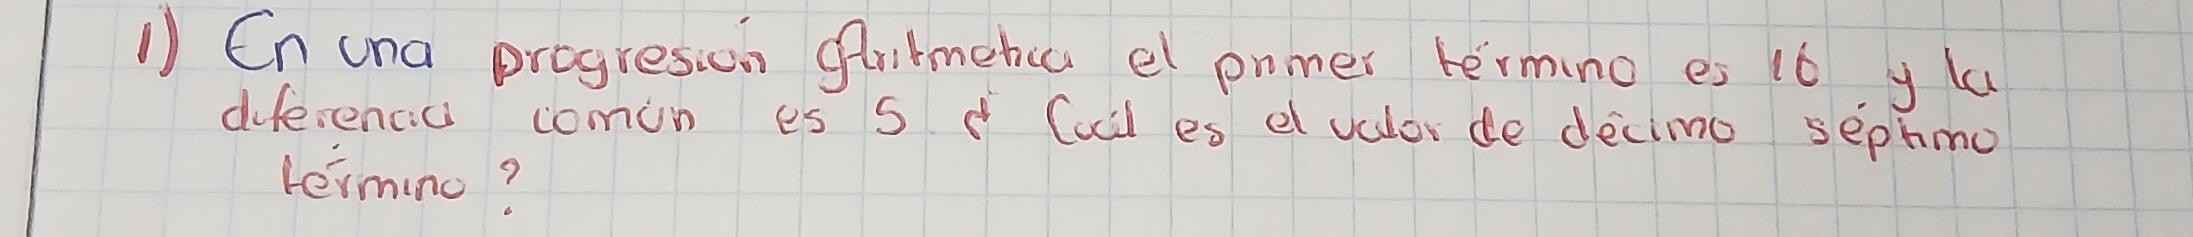 1) En una progresión aritmetica el primer término es 16 y la
diferencia común es 5 ¿ Cuál es el valor de décimo séptimo
término?